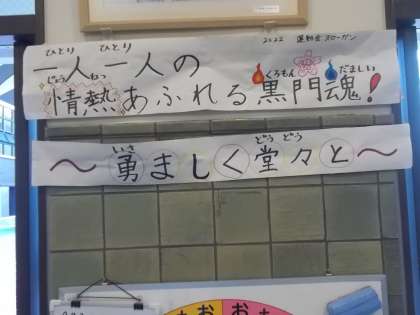 2022 運動会スローガン
ひとり ひとり
一人一人の
じょうねつ くろもん だましい
情熱あふれる黒門魂!
いさ どう どう
〜勇ましく堂々と〜
お お